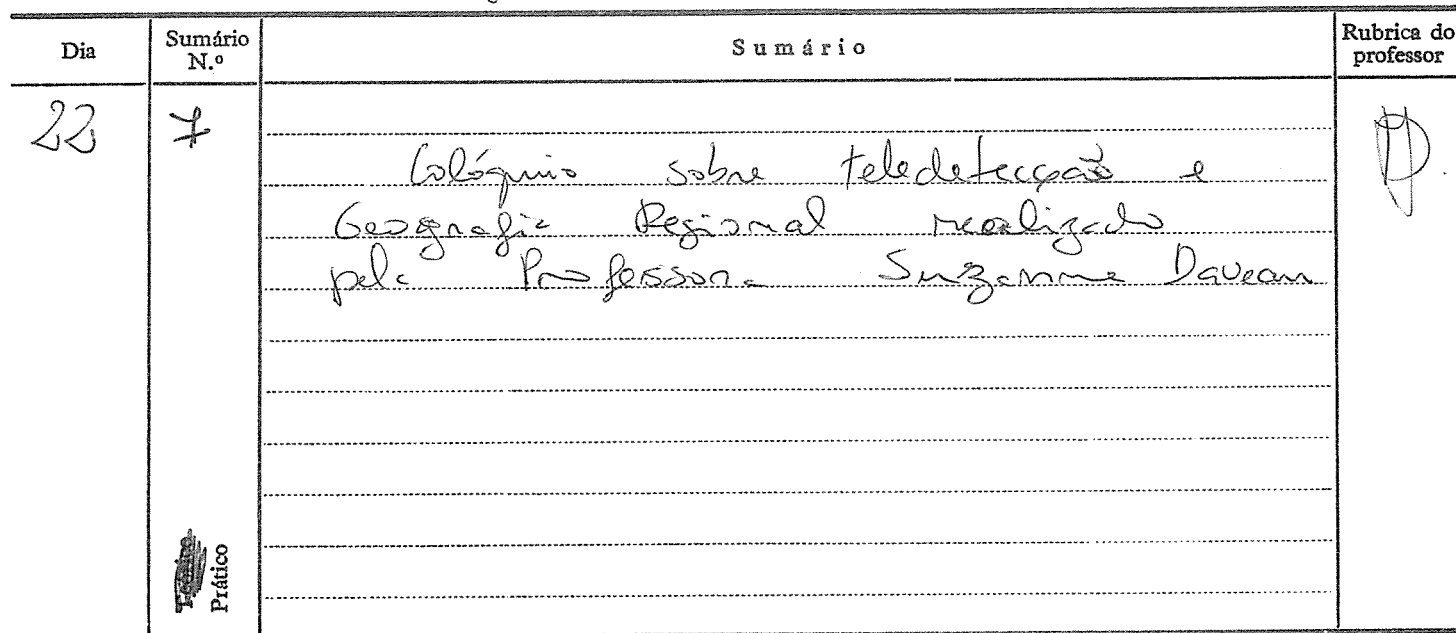 Dia
Sumário N.º
Sumário
Rubrica do professor
22
7
Colóquio sobre teledetecção e
Geografia Regional realizado
pela Professora Suzanne Daveau
Prático